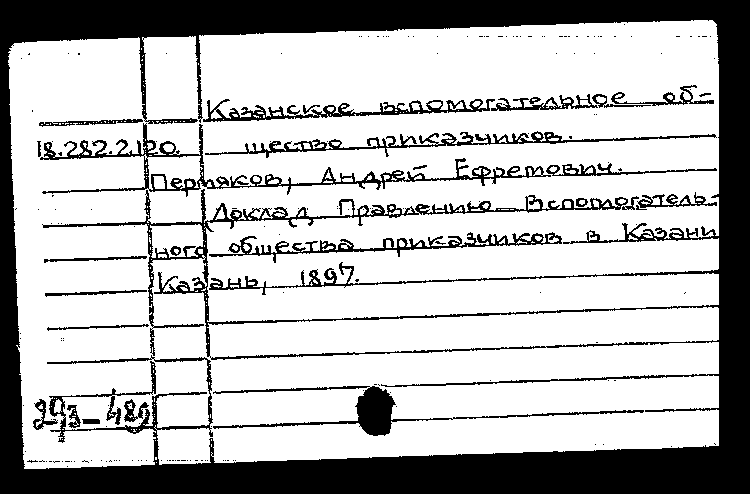 Казанское вспомогательное об-
18.282.2.120. щество приказчиков.
Пермяков, Андрей Ефремович.
Доклад Правлению Вспомогатель-
ного общества приказчиков в Казани
Казань, 1897.
293-489